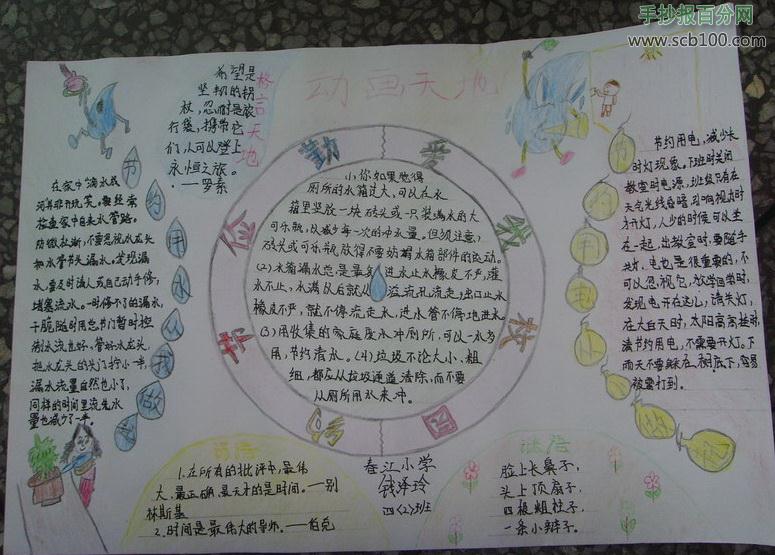 手抄报百分网
www.scb100.com
动画天地
格言天地
希望是
坚韧的拐
杖，忍耐是旅
行袋，携带它
们，人可以登上
永恒之旅。
——罗素
节约用水从我做
在家中"滴水成
河"并非开玩笑。要经常
检查家中自来水管路。
防微杜渐，不要忽视水龙头
和水管节头漏水。发现漏
水，要及时请人或自己动手修，
堵塞流水。一时修不了的漏水，
干脆随时用总节门暂时控
制水流也好，管好水龙头，
把水龙头的头门拧小一半，
漏水流量自然也小了，
同样的时间里流失水
量也减少了一半。
勤
爱
校
园
约
节
俭
(1)你如果觉得
厕所的水箱过大，可以在水
箱里竖放一块砖头或一只装满水的大
可乐瓶，以减少每一次的冲水量。但须注意，
砖头或可乐瓶放得不要妨碍水箱部件的运动。
(2)水箱漏水总是最多，进水止水橡皮不严，灌
水不止，水满以后就从溢流孔流走；出口止水
橡皮不严，就不停流走水，进水管不停地进水。
(3)用收集的家庭废水冲厕所，可以一水多
用，节约清水。(4)垃圾不论大小、粗
细，都应从垃圾通道清除，而不要
从厕所用水来冲。
节约用电
节约用电，减少长
时灯现象。下班时关闭
教室时电源，班级只有在
天气光线昏暗，影响视力时
才开灯，人少的时候可以坐
在一起，出教室时，要随手
关灯，电也是很重要的，不
可以忽视它，放学回家时，
发现电开在这儿，请关灯，
在大白天时，太阳高高挂时，
请节约用电，不需要开灯。下
雨天不要躲在大树底下，容易
被雷打到。
1.在所有的批评中，最伟
大、最正确、最天才的是时间。——别
林斯基
2.时间是最伟大的导师。——伯克
春江小学
钱泽玲
四(2)班
谜语
脸上长鼻子，
头上顶扇子，
四根粗柱子，
一条小辫子。